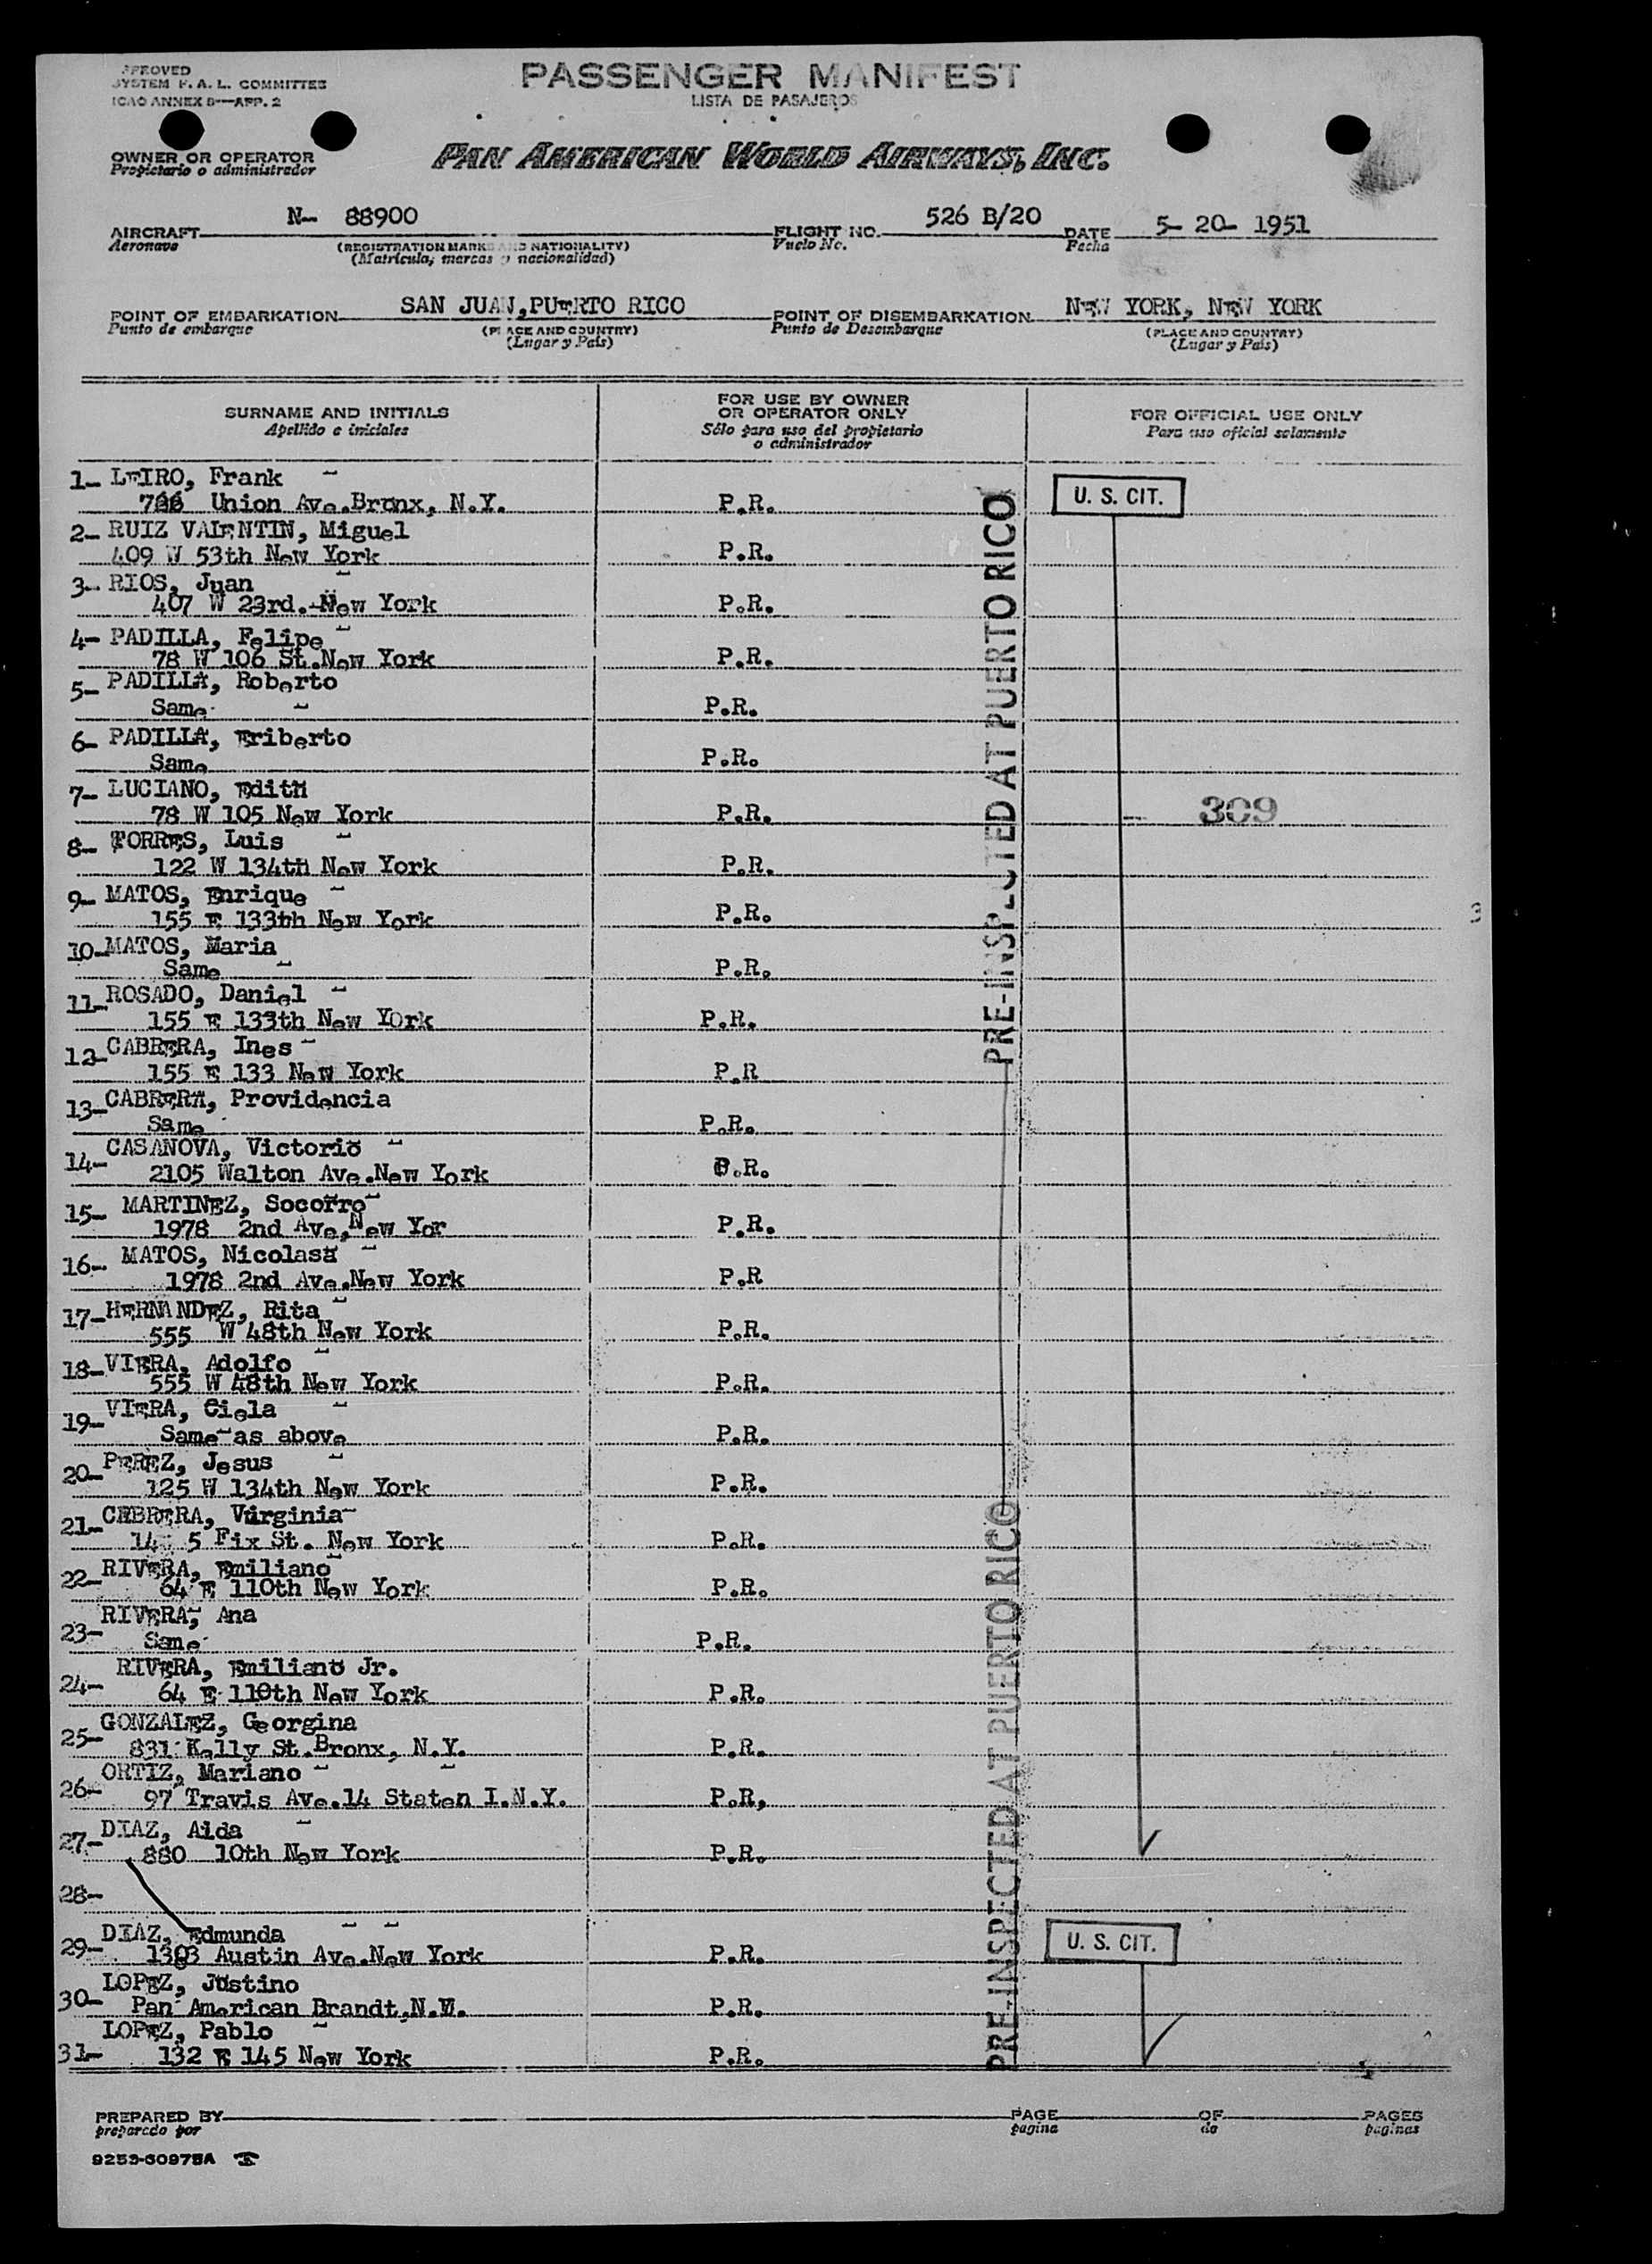 SYSTEM F. A. L. COMMITTEE
ICAO ANNEX 9—APP. 2
PASSENGER MANIFEST
LISTA DE PASAJEROS
OWNER OR OPERATOR
Propietario o administrador
PAN AMERICAN WORLD AIRWAYS, INC.
AIRCRAFT N- 88900 FLIGHT NO. 526 B/20 DATE 5- 20- 1951
Aeronave (REGISTRATION MARKS AND NATIONALITY) Vuelo No. Fecha
(Matrícula, marcas y nacionalidad)
POINT OF EMBARKATION SAN JUAN, PUERTO RICO POINT OF DISEMBARKATION NEW YORK, NEW YORK
Punto de embarque (PLACE AND COUNTRY) Punto de Desembarque (PLACE AND COUNTRY)
(Lugar y País) (Lugar y País)
SURNAME AND INITIALS
Apellido e iniciales
FOR USE BY OWNER
OR OPERATOR ONLY
Sólo para uso del propietario
o administrador
FOR OFFICIAL USE ONLY
Para uso oficial solamente
1- LEIRO, Frank -
Union Ave. Bronx, N.Y. P.R. U. S. CIT.
2- RUIZ VALENTIN, Miguel
409 W 53th New York P.R.
3- RIOS, Juan
407 W 23rd. New York P.R.
4- PADILLA, Felipe
78 W 106 St. New York P.R.
5- PADILLA, Roberto
Same - P.R.
6- PADILLA, Eriberto
Same P.R.
7- LUCIANO, Edith
78 W 105 New York P.R. 309
8- TORRES, Luis -
122 W 134th New York P.R.
9- MATOS, Enrique -
155 E 133th New York P.R.
10- MATOS, Maria
Same - P.R.
11- ROSADO, Daniel -
155 E 133th New York P.R.
12- CABRERA, Ines -
155 E 133 New York P.R
13- CABRERA, Providencia
Same P.R.
14- CASANOVA, Victorio -
2105 Walton Ave. New York P.R.
15- MARTINEZ, Socorro -
1978 2nd Ave, New Yor P.R.
16- MATOS, Nicolasa -
1978 2nd Ave. New York P.R
17- HERNANDEZ, Rita -
555 W 48th New York P.R.
18- VIERA, Adolfo -
555 W 48th New York P.R.
19- VIERA, Ciela -
Same as above P.R.
20- PEREZ, Jesus -
125 W 134th New York P.R.
21- CEBRERA, Virginia -
5 Fix St. New York P.R.
22- RIVERA, Emiliano
64 E 110th New York P.R.
23- RIVERA, Ana
Same P.R.
24- RIVERA, Emiliano Jr.
64 E 110th New York P.R.
25- GONZALEZ, Georgina
831 Kelly St. Bronx, N.Y. P.R.
26- ORTIZ, Mariano -
97 Travis Ave. 14 Staten I.N.Y. P.R,
27- DIAZ, Aida -
880 10th New York P.R.
28-
29- DIAZ, Edmunda - -
Austin Ave. New York P.R. U. S. CIT.
30- LOPEZ, Justino
Pan American Brandt, P.R.
31- LOPEZ, Pablo -
132 E 145 New York P.R.
PRE-INSPECTED AT PUERTO RICO
PRE-INSPECTED AT PUERTO RICO
PREPARED BY PAGE OF PAGES
preparado por página de páginas